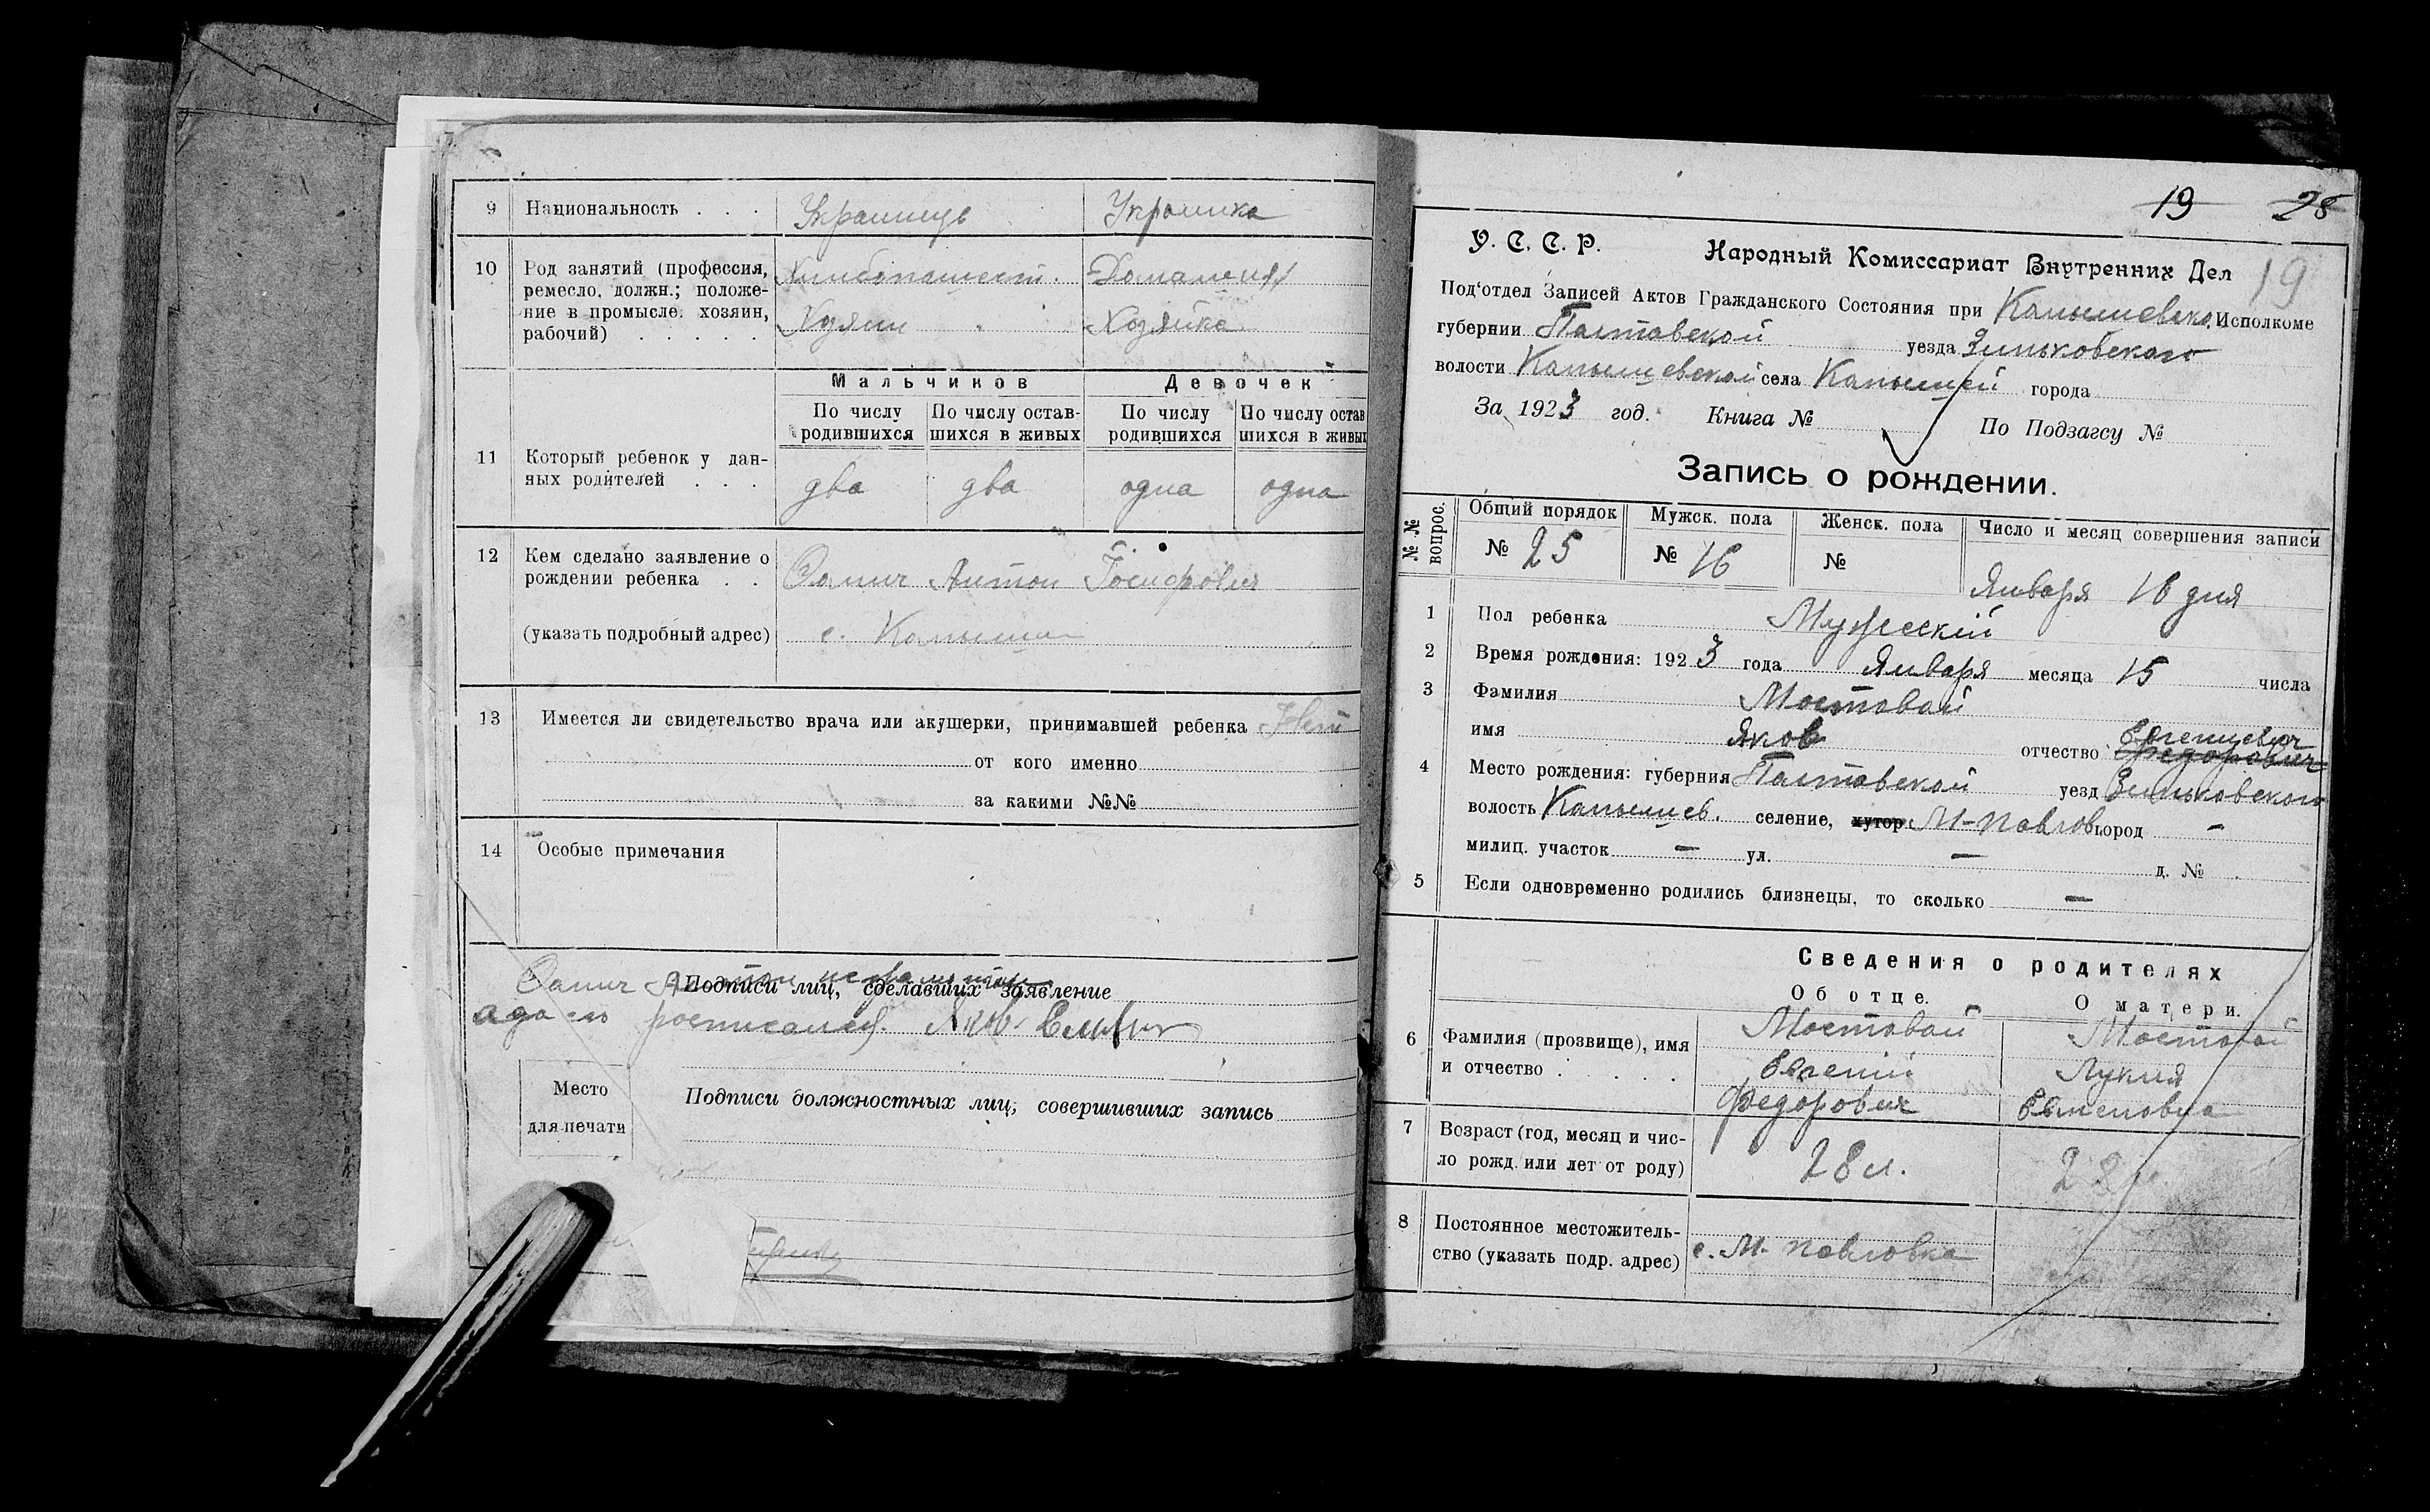 9 Национальность . . . Украинець Украинка
10 Род занятий (профессия, Хлибопашест. Домашния
ремесло, должн.; положе-
ние в промысле: хозяин, Хозяин Хозяйка
рабочий) . . . . .
Мальчиков Девочек
По числу По числу остав- По числу По числу остав
родившихся шихся в живых родившихся шихся в живых
11 Который ребенок у дан-
ных родителей . . . два два одна одна
12 Кем сделано заявление о
рождении ребенка . . Антон Іосифович
(указать подробный адрес) с. Камыши
13 Имеется ли свидетельство врача или акушерки, принимавшей ребенка Нет
от кого именно
за какими №№
14 Особые примечания
Подписи лиц, сделавших заявление
росписался Яков
Место
для печати
Подписи должностных лиц, совершивших запись
19 28
У. С. С. Р. Народный Комиссариат Внутренних Дел 19
Под‘отдел Записей Актов Гражданского Состояния при Исполкоме
губернии Полтавской уезда Зиньковского
волости села города
За 1923 год. Книга № По Подзагсу №
Запись о рождении.
№№ вопрос. Общий порядок Мужск. пола Женск. пола Число и месяц совершения записи
№ 25 № 16 № Января 16 дня
1 Пол ребенка Мужескій
2 Время рождения: 1923 года Января месяца 15 числа
3 Фамилия Мостовай
имя Яков отчество Евгениевич Федорович
4 Место рождения: губерния Полтавской уезд Зиньковского
волость селение, хутор М-Павловк город -
милиц. участок — ул. — д. №
5 Если одновременно родились близнецы, то сколько —
Сведения о родителях
Об отце. О матери.
6 Фамилия (прозвище), имя Мостовай Мостовай
и отчество . . . . Евгений Лукия
Федорович
7 Возраст (год, месяц и чис-
ло рожд. или лет от роду) 28 л. 28 л.
8 Постоянное местожитель-
ство (указать подр. адрес) с. М-Павловка